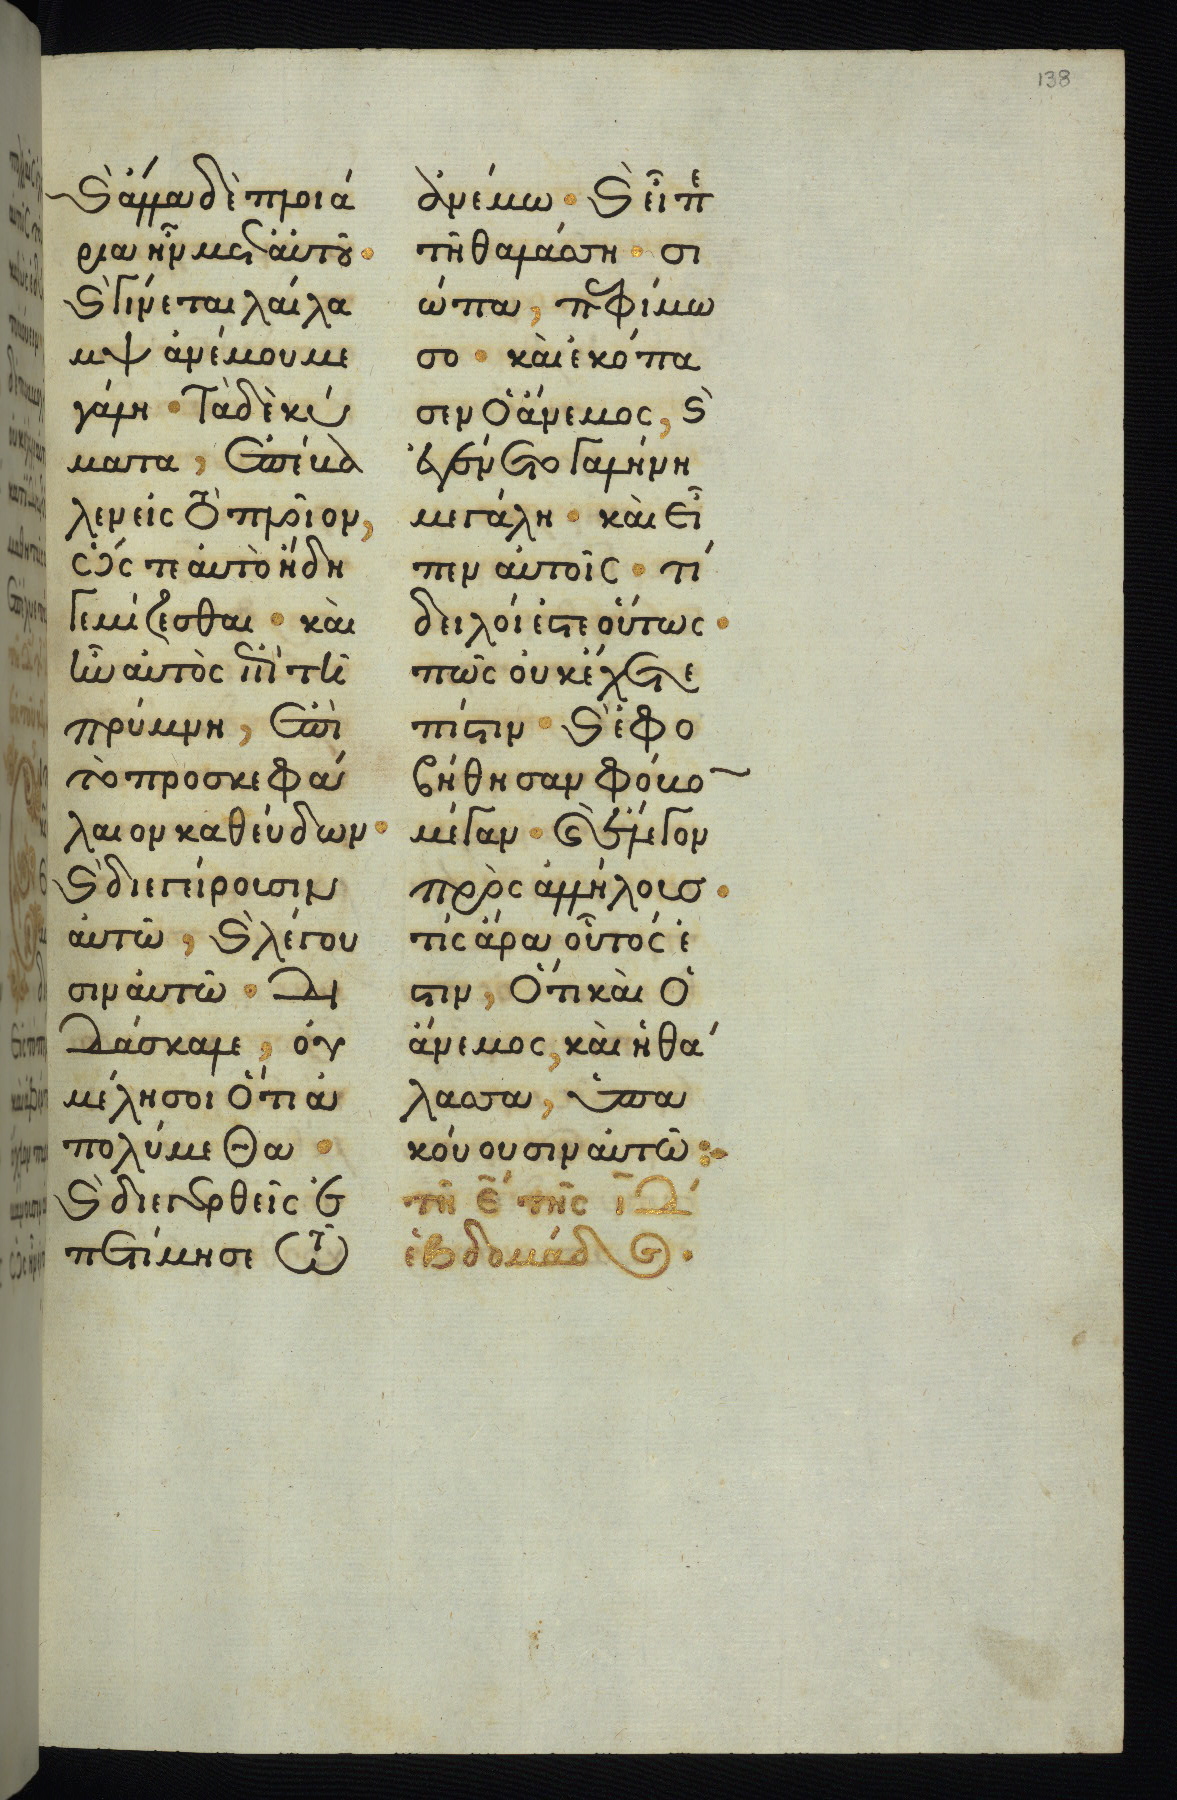 138
καὶ ἄλλα δὲ πλοιά
ρια ἦν μετ' αὐτοῦ.
καὶ γίνεται λαίλα
μψ ἀνέμου με
γάλη. Τὰ δὲ κύ
ματα, ἐπέβα
λεν εἰς τὸ πλοῖον,
ὥστε αὐτὸ ἤδη
γεμίζεσθαι. καὶ
ἦν αὐτὸς ἐπὶ τῇ
πρύμνη, ἐπὶ
τὸ προσκεφά
λαιον καθεύδων.
καὶ διεγείρουσιν
αὐτῶ, καὶ λέγου
σιν αὐτῶ. Δι
δάσκαλε, οὐ
μέλησοι ὅτι ἀ
πολύμεθα.
καὶ διεγερθεὶς ἐ
πετίμησε τῶ
ἀνέμω. καὶ εἶπε
τῆ θαλάσση. σι
ώπα, πεφίμω
σο. καὶ ἐκόπα
σεν ὁ ἄνεμος, καὶ
ἐγένετο γαλήνη
μεγάλη. καὶ εἶ
πεν αὐτοῖς. τί
δειλοί ἐστε οὕτως.
πῶς οὐκ ἔχετε
πίστιν. καὶ ἐφο
βήθησαν φόβον
μέγαν. καὶ ἔλεγον
πρὸς ἀλλήλους.
τίς ἄρα οὗτός ἐ
στιν, ὅτι καὶ ὁ
ἄνεμος, καὶ ἡ θά
λασσα, ὑπα
κούουσιν αὐτῶ:
τῆ ε̄ τῆς ῑδ
ἑβδομάδος.